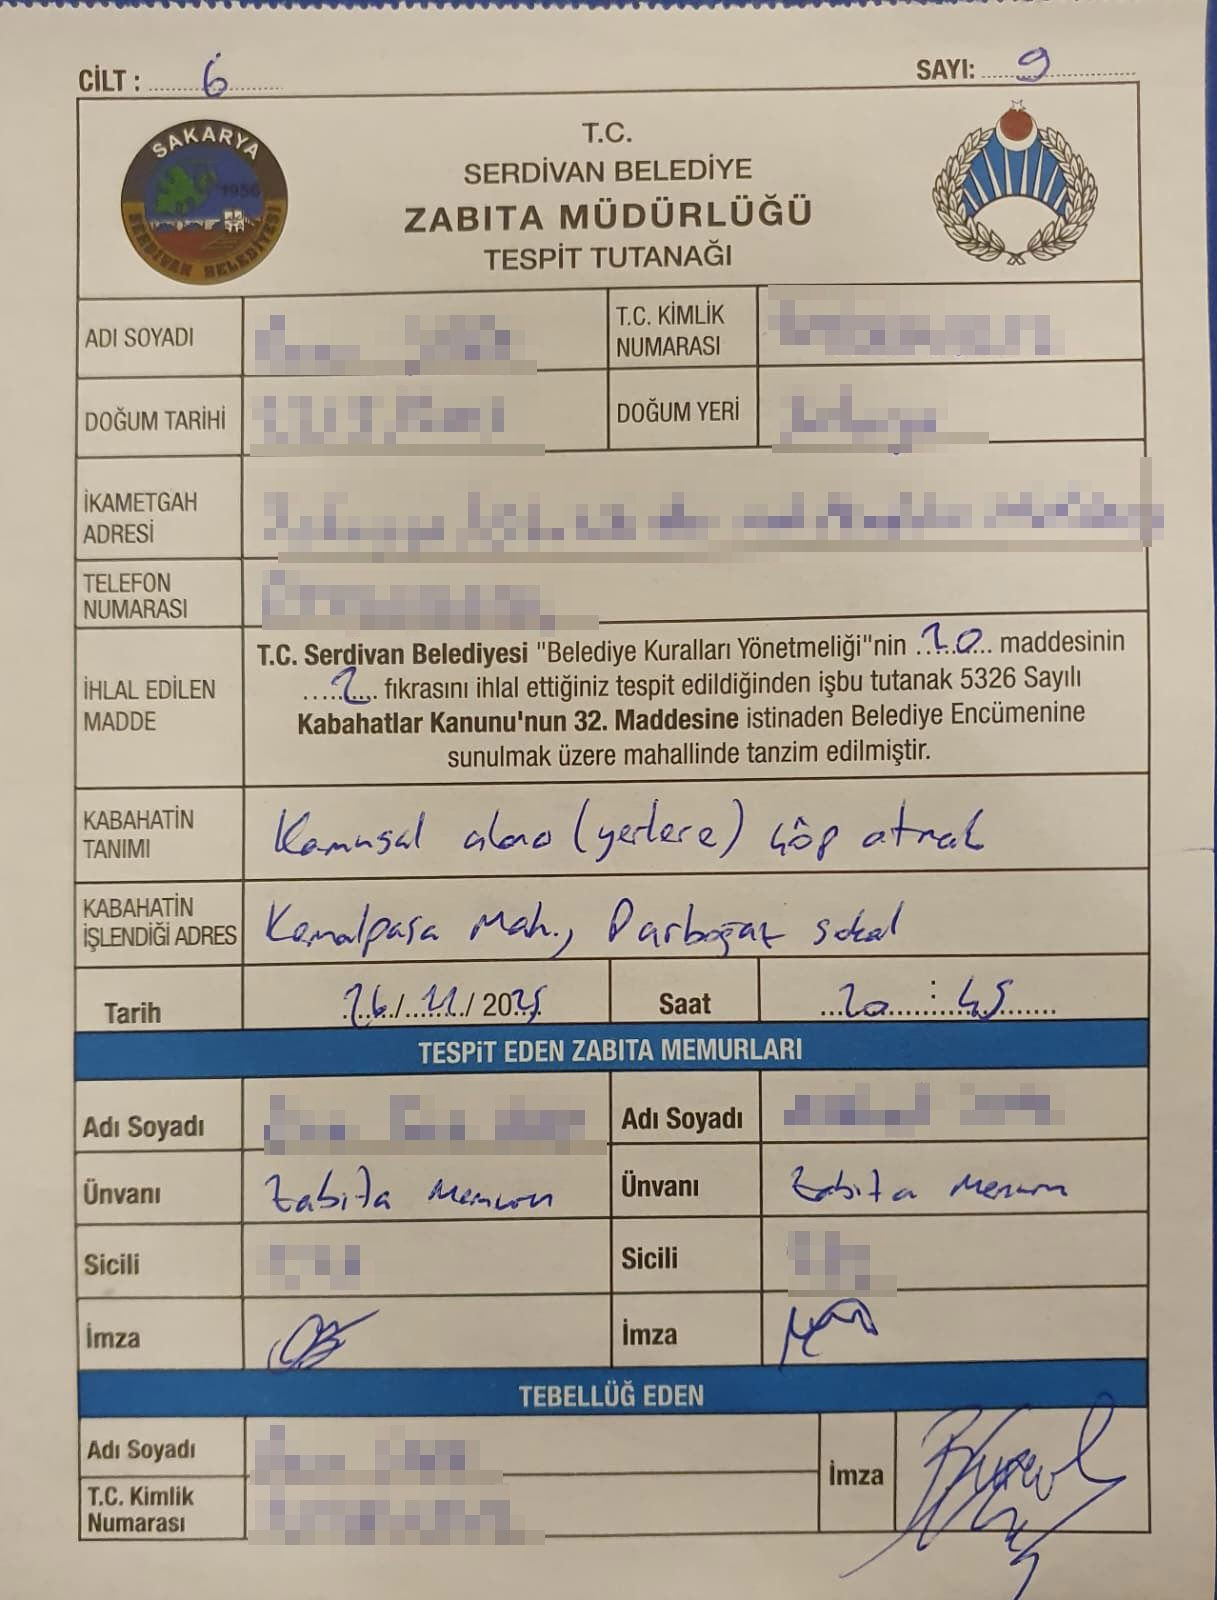 CİLT : 6
SAYI: 9
SAKARYA
1956
SERDİVAN BELEDİYESİ
T.C.
SERDİVAN BELEDİYE
ZABITA MÜDÜRLÜĞÜ
TESPİT TUTANAĞI
ADI SOYADI
T.C. KİMLİK
NUMARASI
DOĞUM TARİHİ
DOĞUM YERİ
İKAMETGAH
ADRESİ
TELEFON
NUMARASI
İHLAL EDİLEN
MADDE
T.C. Serdivan Belediyesi "Belediye Kuralları Yönetmeliği"nin 20 maddesinin
2 fıkrasını ihlal ettiğiniz tespit edildiğinden işbu tutanak 5326 Sayılı
Kabahatlar Kanunu'nun 32. Maddesine istinaden Belediye Encümenine
sunulmak üzere mahallinde tanzim edilmiştir.
KABAHATİN
TANIMI
Kamusal alana (yerlere) çöp atmak
KABAHATİN
İŞLENDİĞİ ADRES
Kemalpaşa Mah., Darboğaz sokak
Tarih
26/11/2025
Saat
20:45
TESPiT EDEN ZABITA MEMURLARI
Adı Soyadı
Adı Soyadı
Ünvanı
Zabıta Memuru
Ünvanı
Zabıta Memuru
Sicili
Sicili
İmza
İmza
TEBELLÜĞ EDEN
Adı Soyadı
İmza
T.C. Kimlik
Numarası